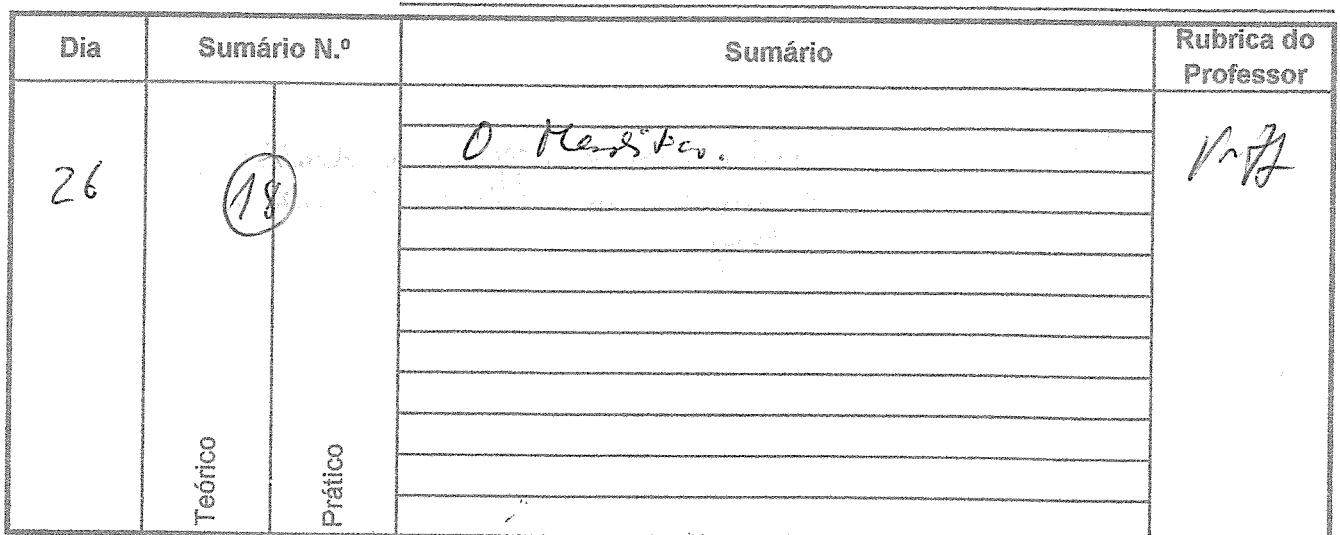 Dia
Sumário N.º
Sumário
Rubrica do
Professor
26
18
O
Teórico
Prático